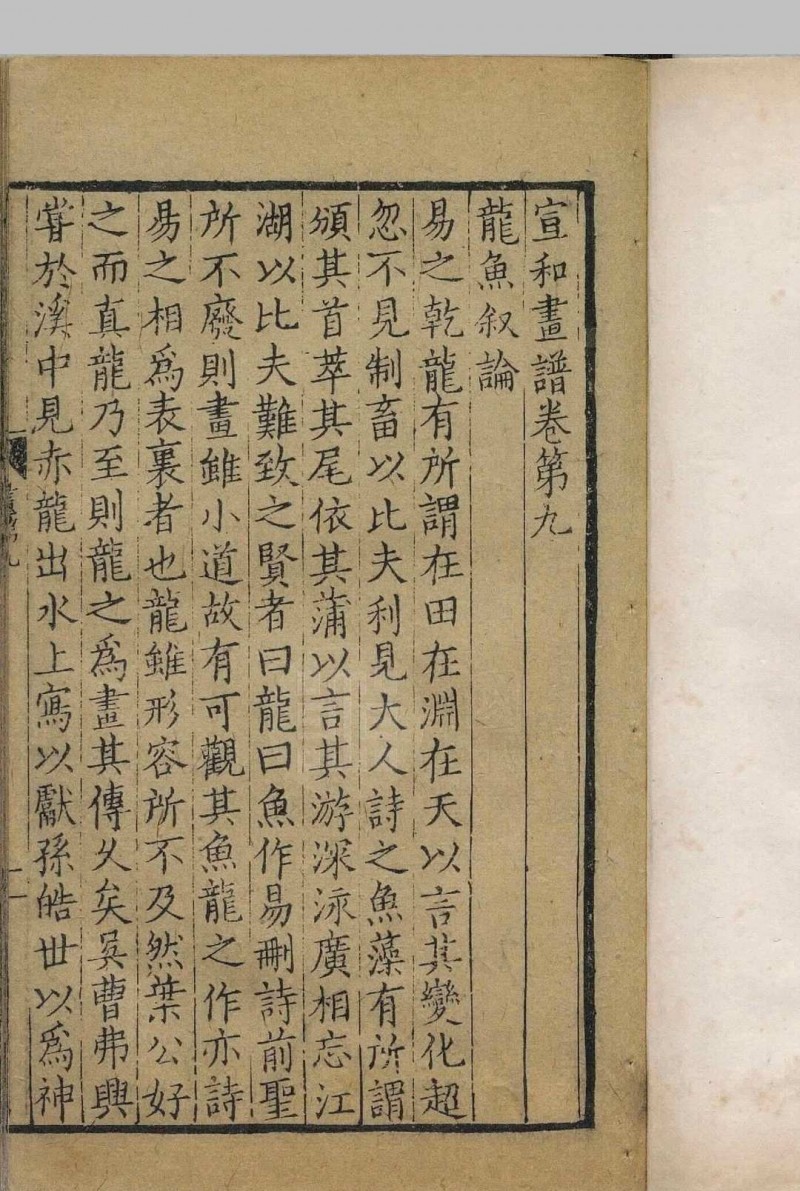 宣和畫譜卷第九
龍魚叙論
易之乾龍有所謂在田在淵在天以言其變化超
忽不見制畜以比夫利見大人詩之魚藻有所謂
頒其首莘其尾依其蒲以言其游深泳廣相忘江
湖以比夫難致之賢者曰龍曰魚作易刪詩前聖
所不廢則畫雖小道故有可觀其魚龍之作亦詩
易之相為表裏者也龍雖形容所不及然葉公好
之而真龍乃至則龍之為畫其傳久矣吳曹弗興
甞於溪中見赤龍出水上寫以獻孫皓世以為神